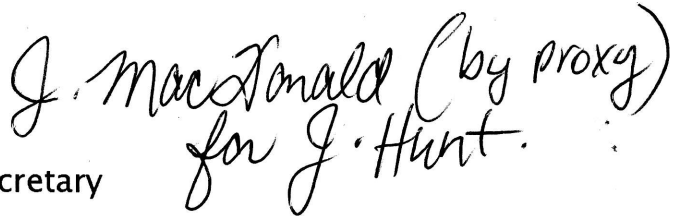 J. MacDonald (by proxy)
for J. Hunt.
cretary